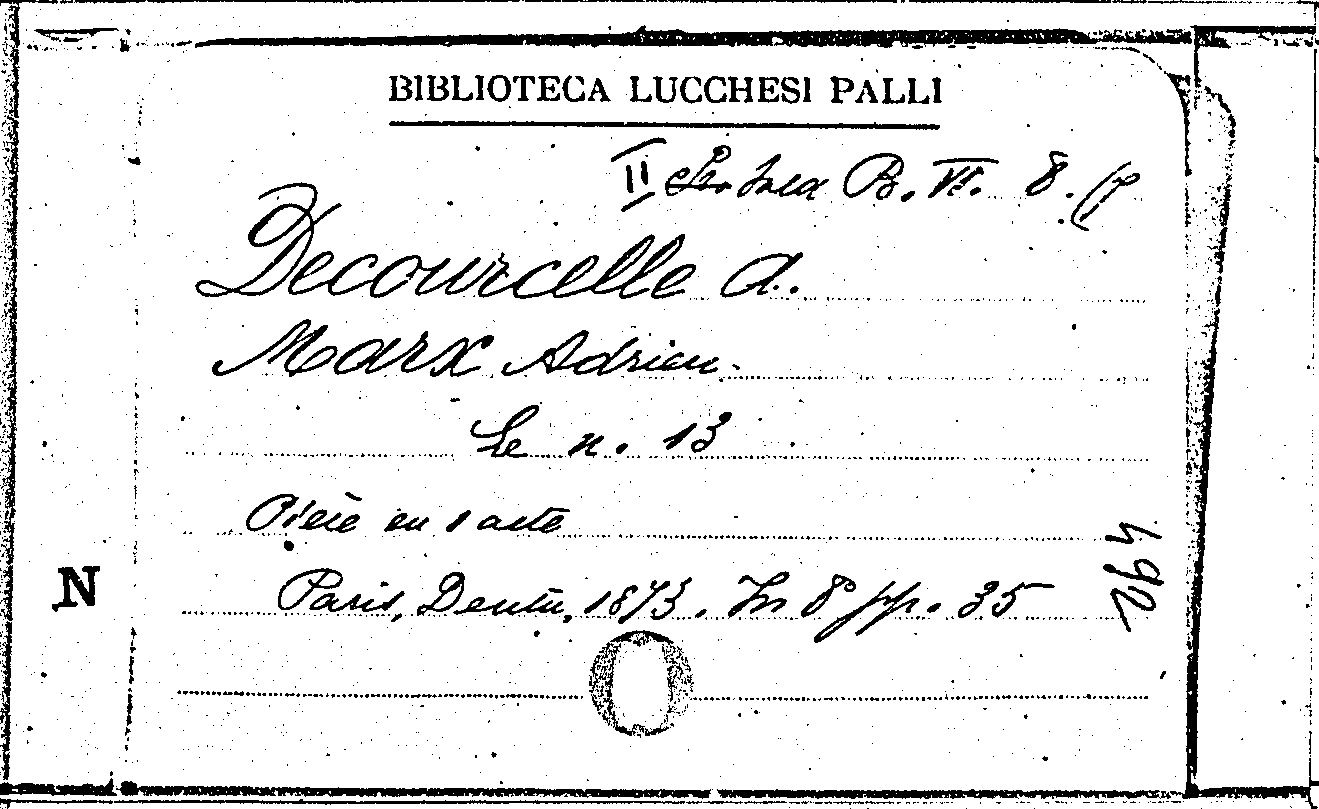 BIBLIOTECA LUCCHESI PALLI
II B. VI. 8. (7
Decourcelle A.
Marx Adrien.
Le n. 13
Pièce en 1 acte
N
Paris, Dentu, 1873. In 8° pp. 35
492